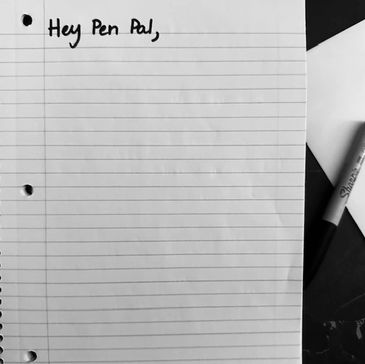 Hey Pen Pal,
Sharpie